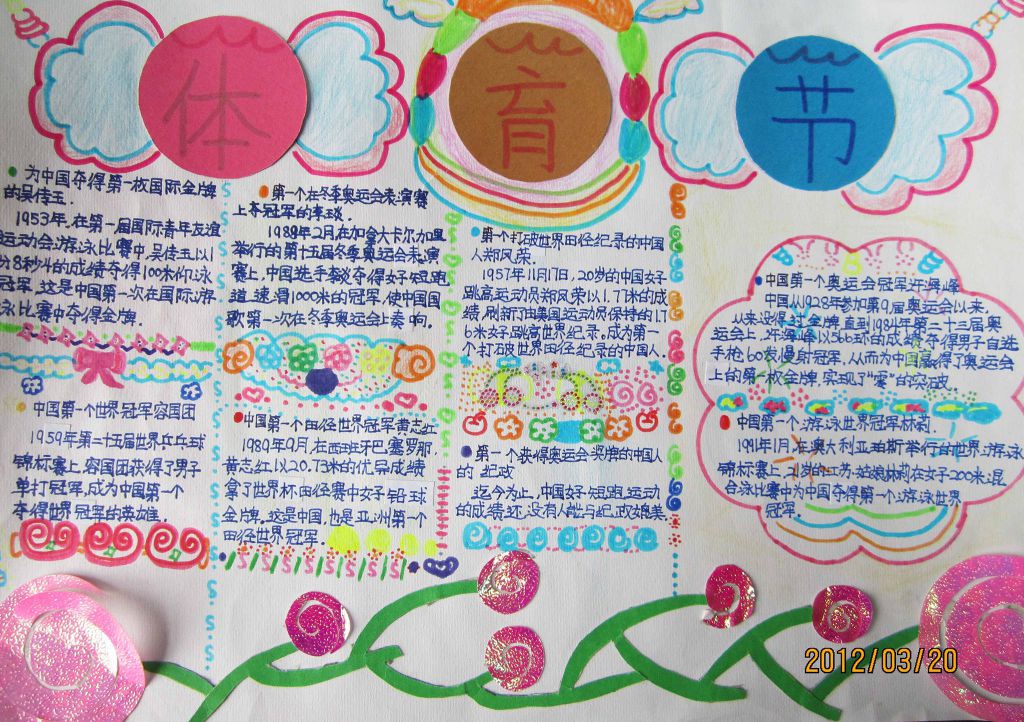 体育节
为中国夺得第一枚国际金牌
的吴传玉.
1953年,在第一届国际青年友谊
运动会游泳比赛中,吴传玉以1
分8秒4的成绩夺得100米仰泳
冠军,这是中国第一次在国际游
泳比赛中夺得金牌.
中国第一个世界冠军容国团
1959年第二十五届世界乒乓球
锦标赛上,容国团获得了男子
单打冠军,成为中国第一个
夺得世界冠军的英雄.
第一个在冬季奥运会表演赛
上夺冠军的李琰.
1989年2月,在加拿大卡尔加里
举行的第十五届冬季奥运会表演
赛上,中国选手李琰夺得女子短跑
道速滑1000米的冠军,使中国国
歌第一次在冬季奥运会上奏响.
中国第一个田径世界冠军黄志红
1989年9月,在西班牙巴塞罗那,
黄志红以20.73米的优异成绩
拿了世界杯田径赛中女子铅球
金牌。这是中国,也是亚洲第一个
田径世界冠军.
第一个打破世界田径纪录的中国
人郑凤荣.
1957年11月17日,20岁的中国女子
跳高运动员郑凤荣以1.77米的成
绩,刷新了由美国运动员保持的1.76
米女子跳高世界纪录,成为第一
个打破世界田径纪录的中国人.
第一个获得奥运会奖牌的中国人
的 纪政
迄今为止,中国女子短跑运动
的成绩还没有人能与纪政媲美.
中国第一个奥运会冠军许海峰
中国从1928年参加第9届奥运会以来,
从来没得过金牌,直到1984年第二十三届奥
运会上,许海峰以566环的成绩夺得男子自选
手枪60发慢射冠军,从而为中国赢得了奥运会
上的第一枚金牌,实现了“零”的突破
中国第一个游泳世界冠军林莉.
1991年1月,在澳大利亚珀斯举行的世界游泳
锦标赛上,21岁的江苏姑娘林莉在女子200米混
合泳比赛中为中国夺得第一个游泳世界
冠军.
2012/03/20